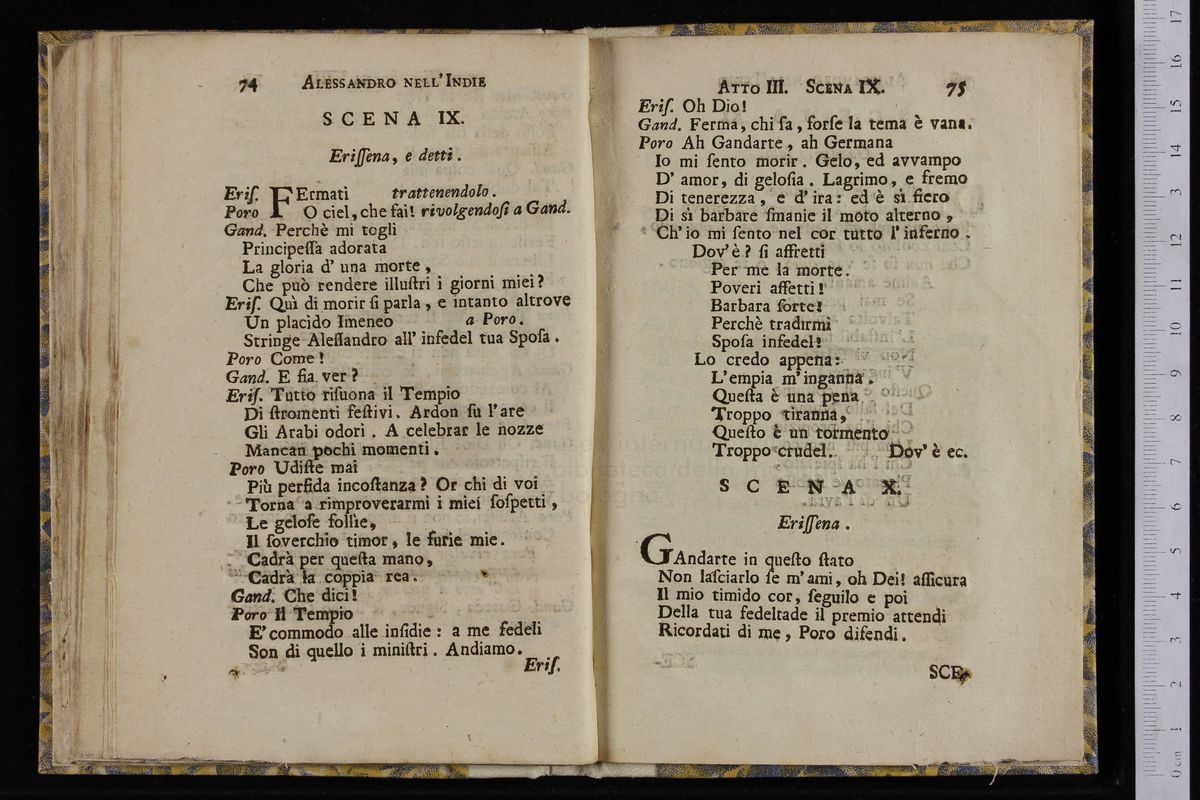 74 ALESSANDRO NELL' INDIE
SCENA IX.
Eriſſena, e detti.
Eriſ. FErmati trattenendolo.
Poro O ciel, che fai! rivolgendoſi a Gand.
Gand. Perchè mi togli
Principeſſa adorata
La gloria d' una morte,
Che può rendere illuſtri i giorni miei?
Eriſ. Quì di morir ſi parla, e intanto altrove
Un placido Imeneo a Poro.
Stringe Aleſſandro all' infedel tua Spoſa.
Poro Come!
Gand. E fia ver?
Eriſ. Tutto riſuona il Tempio
Di ſtromenti feſtivi. Ardon ſu l'are
Gli Arabi odori. A celebrar le nozze
Mancan pochi momenti.
Poro Udiſte mai
Più perfida incoſtanza? Or chi di voi
Torna a rimproverarmi i miei ſoſpetti,
Le geloſe follìe,
Il ſoverchio timor, le furie mie.
Cadrà per queſta mano,
Cadrà la coppia rea.
Gand. Che dici!
Poro Il Tempio
E' commodo alle inſidie: a me fedeli
Son di quello i miniſtri. Andiamo.
Eriſ.
ATTO III. SCENA IX. 75
Eriſ. Oh Dio!
Gand. Ferma, chi ſa, forſe la tema è vana.
Poro Ah Gandarte, ah Germana
Io mi ſento morir. Gelo, ed avvampo
D' amor, di geloſia. Lagrimo, e fremo
Di tenerezza, e d' ira: ed è sì fiero
Di sì barbare ſmanie il moto alterno,
Ch' io mi ſento nel cor tutto l' inferno.
Dov' è? ſi affretti
Per me la morte.
Poveri affetti!
Barbara ſorte!
Perchè tradirmi
Spoſa infedel!
Lo credo appena:
L'empia m'inganna.
Queſta è una pena
Troppo tiranna,
Queſto è un tormento
Troppo crudel. Dov' è ec.
SCENA X.
Eriſſena.
GAndarte in queſto ſtato
Non laſciarlo ſe m'ami, oh Dei! aſſicura
Il mio timido cor, ſeguilo e poi
Della tua fedeltade il premio attendi
Ricordati di me, Poro difendi.
SCE-